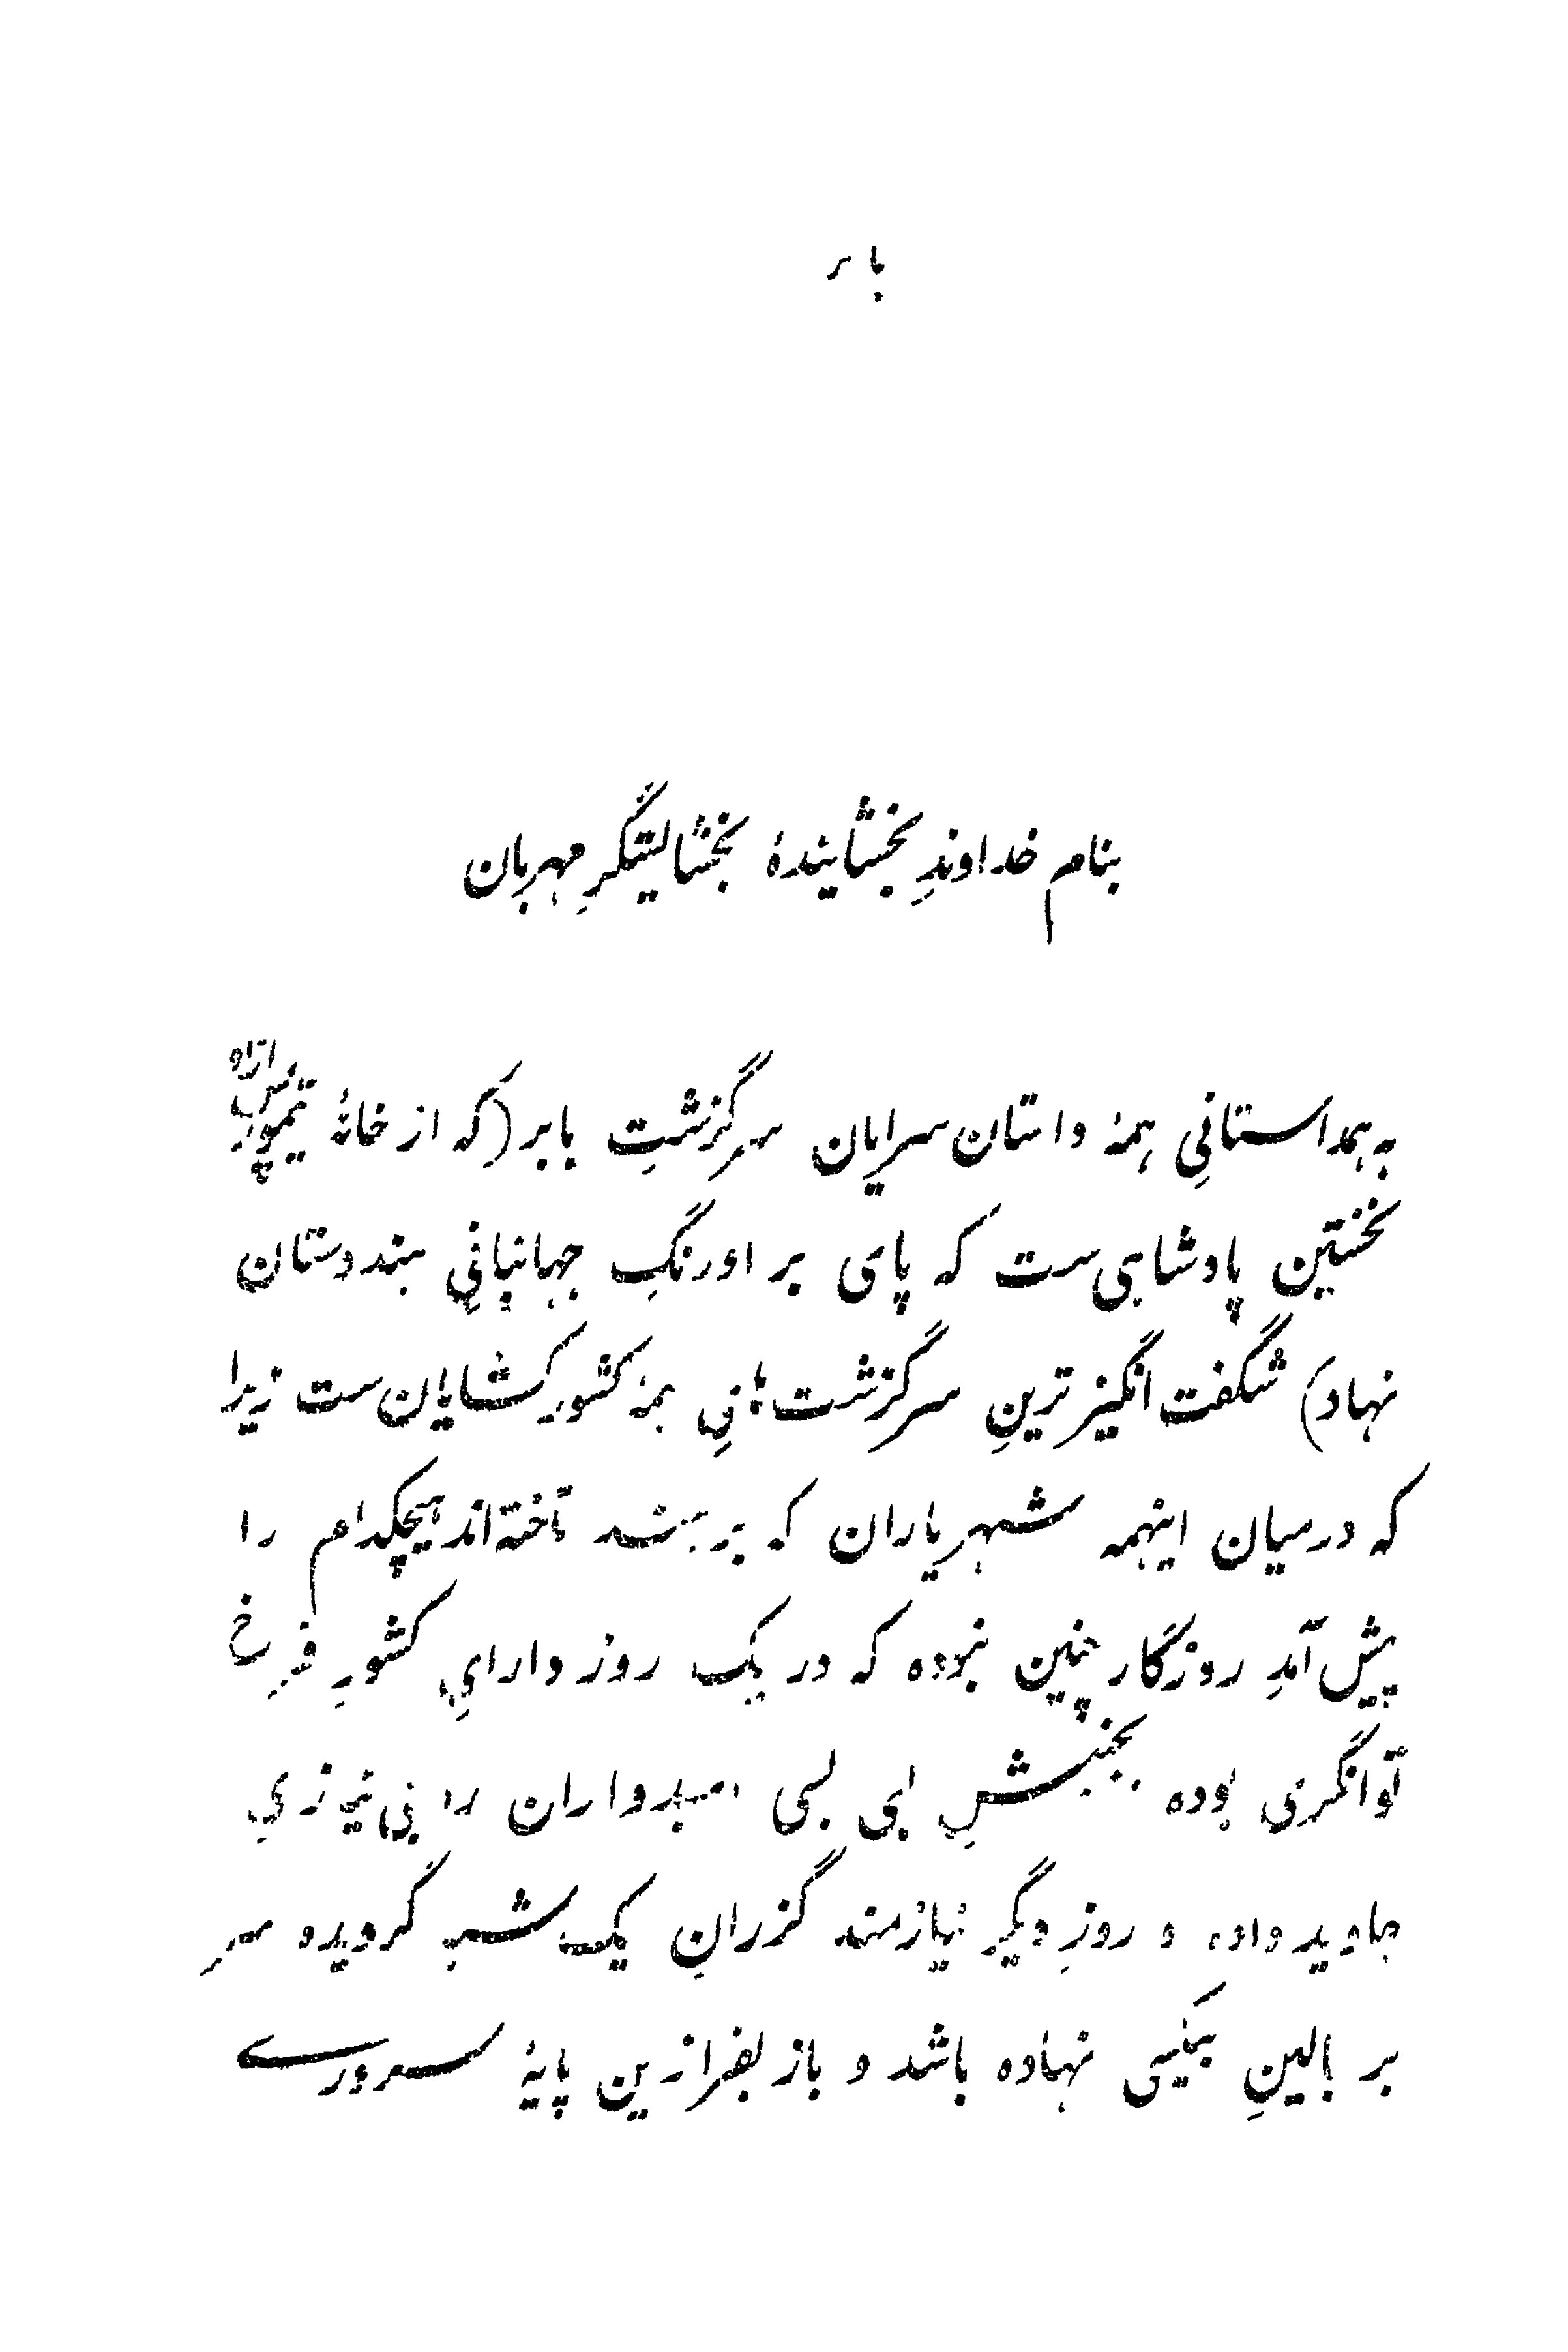 بابر
بنام خداوندِ بخشایندۀ بخشایشگرِ مهربان
به همداستانیِ همۀ داستان‌سرایان سرگزشتِ بابر (که از خانۀ تیمور
نخستین پادشاهی‌ست که پای بر اورنگِ جهانبانیِ هندوستان
نهاد) شگفت‌انگیزترینِ سرگزشت‌هائیِ همۀ کشورکشایان‌ست زیرا
که درمیان اینهمه شهریاران که بر هند تاخته‌اند هیچکدام را
پیش‌آمدِ روزگار چنین نبوده که در یک روز دارایِ کشورِ فرخ
توانگری بوده بخشِ امیدواران را بی‌نیازیِ
جاوید داده و روزِ دیگر نیازمند گزرانِ یک‌شب گردیده سر
بر بالینِ بیکسی نهاده باشد و باز بفرازین پایۀ سروری